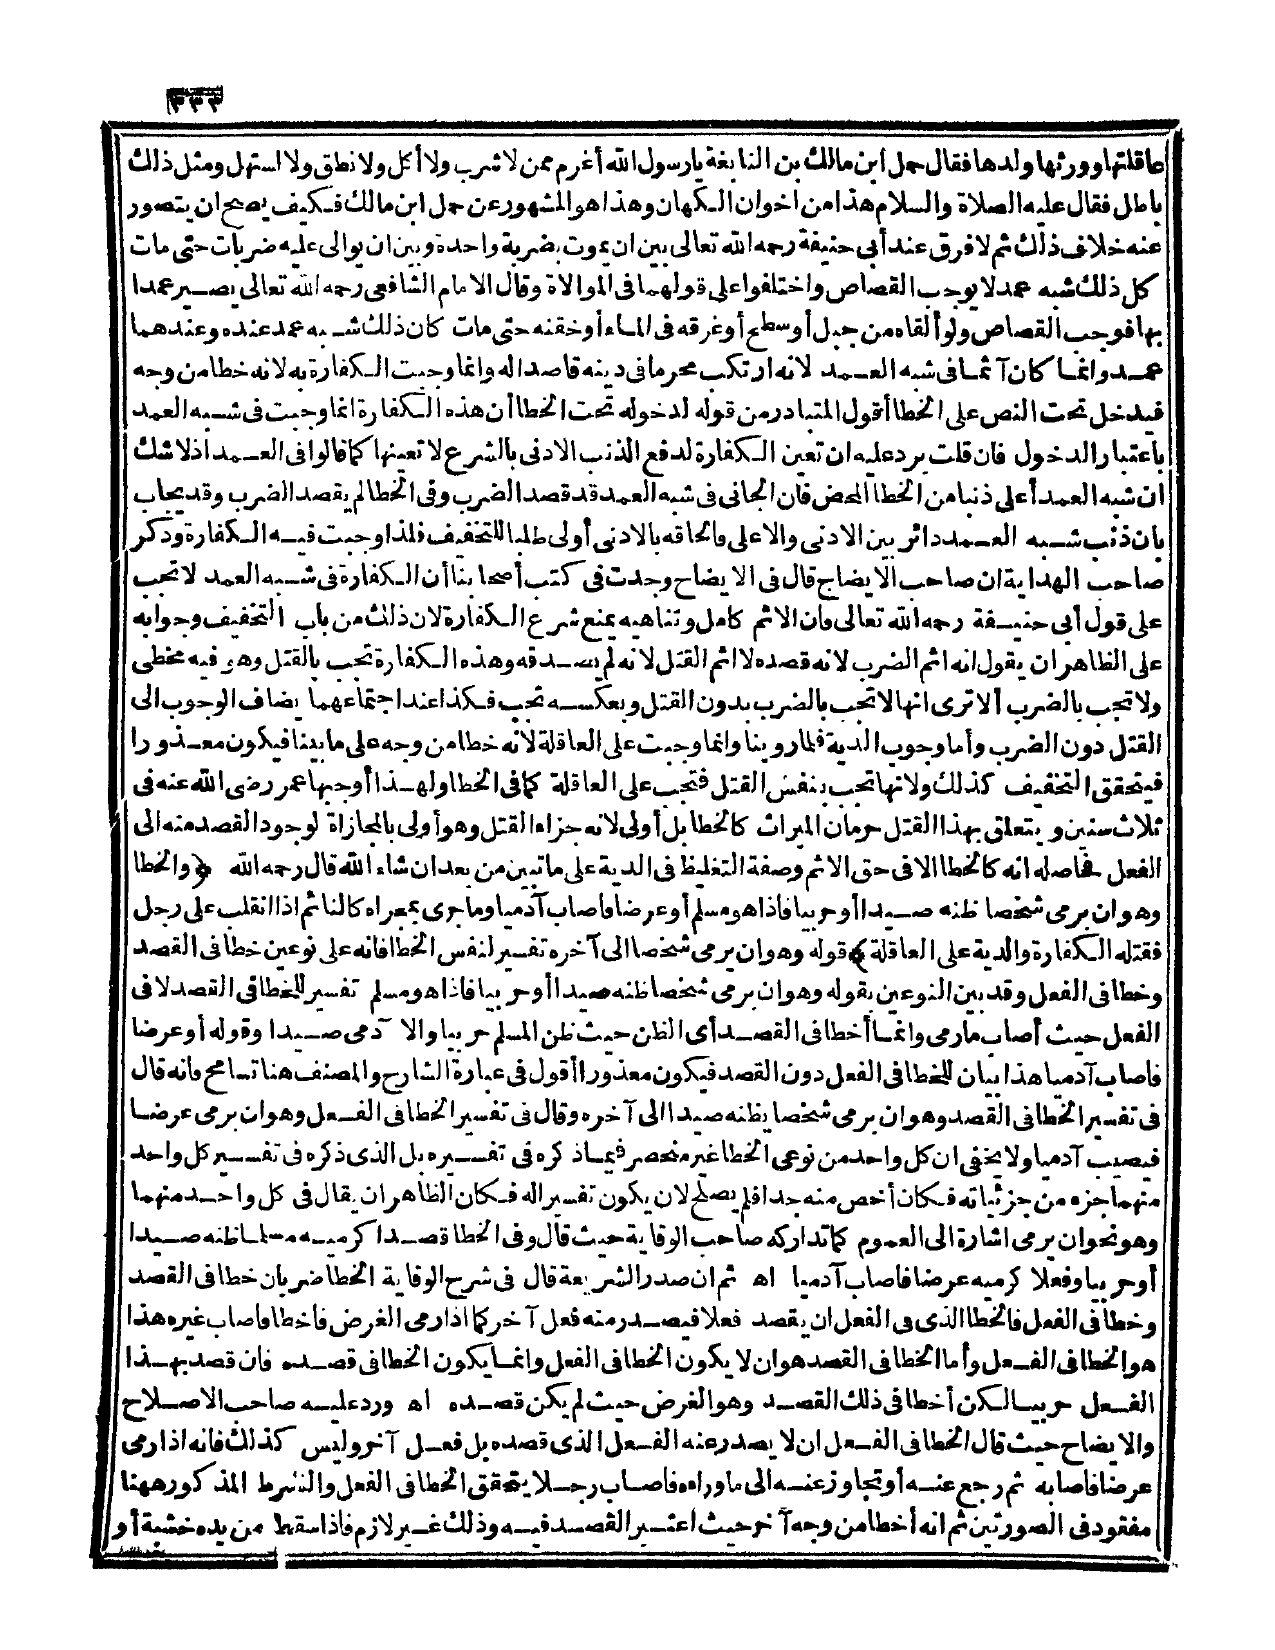 ٣٣٣
عاقلتها وورثها ولدها فقال حمل ابن مالك بن النابغة يا رسول الله أغرم ممن لا شرب ولا أكل ولا نطق ولا استهل ومثل ذلك
باطل فقال عليه الصلاة والسلام هذا من اخوان الكهان وهذا هو المشهور عن حمل ابن مالك فكيف يصح ان يتصور
عنه خلاف ذلك ثم لا فرق عند أبي حنيفة رحمه الله تعالى بين ان يموت بضربة واحدة وبين ان يوالى عليه ضربات حتى مات
كل ذلك شبه عمد لا يوجب القصاص واختلفوا على قولهما في الموالاة وقال الامام الشافعي رحمه الله تعالى يصير عمدا
بها فوجب القصاص ولو ألقاه من جبل أو سطح أو غرقه في الماء أو خنقه حتى مات كان ذلك شبه عمد عنده وعندهما
عمد وانما كان آثما في شبه العمد لانه ارتكب محرما في دينه قاصدا له وانما وجبت الكفارة به لانه خطا من وجه
فيدخل تحت النص على الخطا أقول المتبادر من قوله لدخوله تحت الخطا أن هذه الكفارة انما وجبت في شبه العمد
باعتبار الدخول فان قلت يرد عليه ان تعين الكفارة لدفع الذنب الادنى بالشرع لا تعينها كما قالوا في العمد اذ لا شك
ان شبه العمد أعلى ذنبا من الخطا المحض فان الجاني في شبه العمد قد قصد الضرب وفي الخطا لم يقصد الضرب وقد يجاب
بان ذنب شبه العمد دائر بين الادنى والاعلى فالحاقه بالادنى أولى طلبا للتخفيف فلذا وجبت فيه الكفارة وذكر
صاحب الهداية ان صاحب الايضاح قال في الايضاح وجدت في كتب أصحابنا أن الكفارة في شبه العمد لا تجب
على قول أبي حنيفة رحمه الله تعالى فان الاثم كامل وتناهيه يمنع شرع الكفارة لان ذلك من باب التخفيف وجوابه
على الظاهر ان يقول انه اثم الضرب لانه قصده لا اثم القتل لانه لم يصدقه وهذه الكفارة تجب بالقتل وهو فيه مخطى
ولا تجب بالضرب ألا ترى انها لا تجب بالضرب بدون القتل وبعكسه تجب فكذا عند اجتماعهما يضاف الوجوب الى
القتل دون الضرب وأما وجوب الدية فلما روينا وانما وجبت على العاقلة لانه خطا من وجه على ما بينا فيكون معذورا
فيتحقق التخفيف كذلك ولانها تجب بنفس القتل فتجب على العاقلة كما في الخطا ولهذا أوجبها عمر رضى الله عنه في
ثلاث سنين ويتعلق بهذا القتل حرمان الميراث كالخطا بل أولى لانه جزاء القتل وهو أولى بالمجازاة لوجود القصد منه الى
الفعل فحاصله انه كالخطا الا في حق الاثم وصفة التغليظ في الدية على ما تبين من بعد ان شاء الله قال رحمه الله ﴿والخطا
وهو ان يرمى شخصا ظنه صيدا أو حربيا فاذا هو مسلم أو عرضا فأصاب آدميا وما جرى مجراه كالنائم اذا انقلب على رجل
فقتله الكفارة والدية على العاقلة﴾ قوله وهو ان يرمى شخصا الى آخره تفسير لنفس الخطا فانه على نوعين خطا في القصد
وخطا في الفعل وقد بين النوعين بقوله وهو ان يرمى شخصا ظنه صيدا أو حربيا فاذا هو مسلم تفسير للخطا في القصد لا في
الفعل حيث أصاب ما رمى وانما أخطا في القصد أى الظن حيث ظن المسلم حربيا والآدمى صيدا وقوله أو عرضا
فاصاب آدميا هذا بيان للخطا في الفعل دون القصد فيكون معذورا أقول في عبارة الشارح والمصنف هنا تسامح فانه قال
في تفسير الخطا في القصد وهو ان يرمى شخصا يظنه صيدا الى آخره وقال في تفسير الخطا في الفعل وهو ان يرمى عرضا
فيصيب آدميا ولا يخفى ان كل واحد من نوعى الخطا غير منحصر فيما ذكره في تفسيره بل الذى ذكره في تفسير كل واحد
منهما جزء من جزئياته فكان أخص منه جدا فلم يصلح لان يكون تفسيرا له فكان الظاهر ان يقال في كل واحد منهما
وهو نحو ان يرمى اشارة الى العموم كما تداركه صاحب الوقاية حيث قال وفي الخطا قصدا كرميه مسلما ظنه صيدا
أو حربيا وفعلا كرميه عرضا فاصاب آدميا اه ثم ان صدر الشريعة قال في شرح الوقاية الخطا ضربان خطا في القصد
وخطا في الفعل فالخطا الذى في الفعل ان يقصد فعلا فيصدر منه فعل آخر كما اذا رمى الغرض فاخطا فاصاب غيره هذا
هو الخطا في الفعل وأما الخطا في القصد هو ان لا يكون الخطا في الفعل وانما يكون الخطا في قصده فان قصد بهذا
الفعل حربيا لكن أخطا في ذلك القصد وهو الغرض حيث لم يكن قصده اه ورد عليه صاحب الاصلاح
والايضاح حيث قال الخطا في الفعل ان لا يصدر عنه الفعل الذى قصده بل فعل آخر وليس كذلك فانه اذا رمى
عرضا فاصابه ثم رجع عنه أو تجاوز عنه الى ما وراءه فاصاب رجلا يتحقق الخطا في الفعل والشرط المذكور ههنا
مفقود في الصورتين ثم انه أخطا من وجه آخر حيث اعتبر القصد فيه وذلك غير لازم فاذا سقط من يده خشبة أو